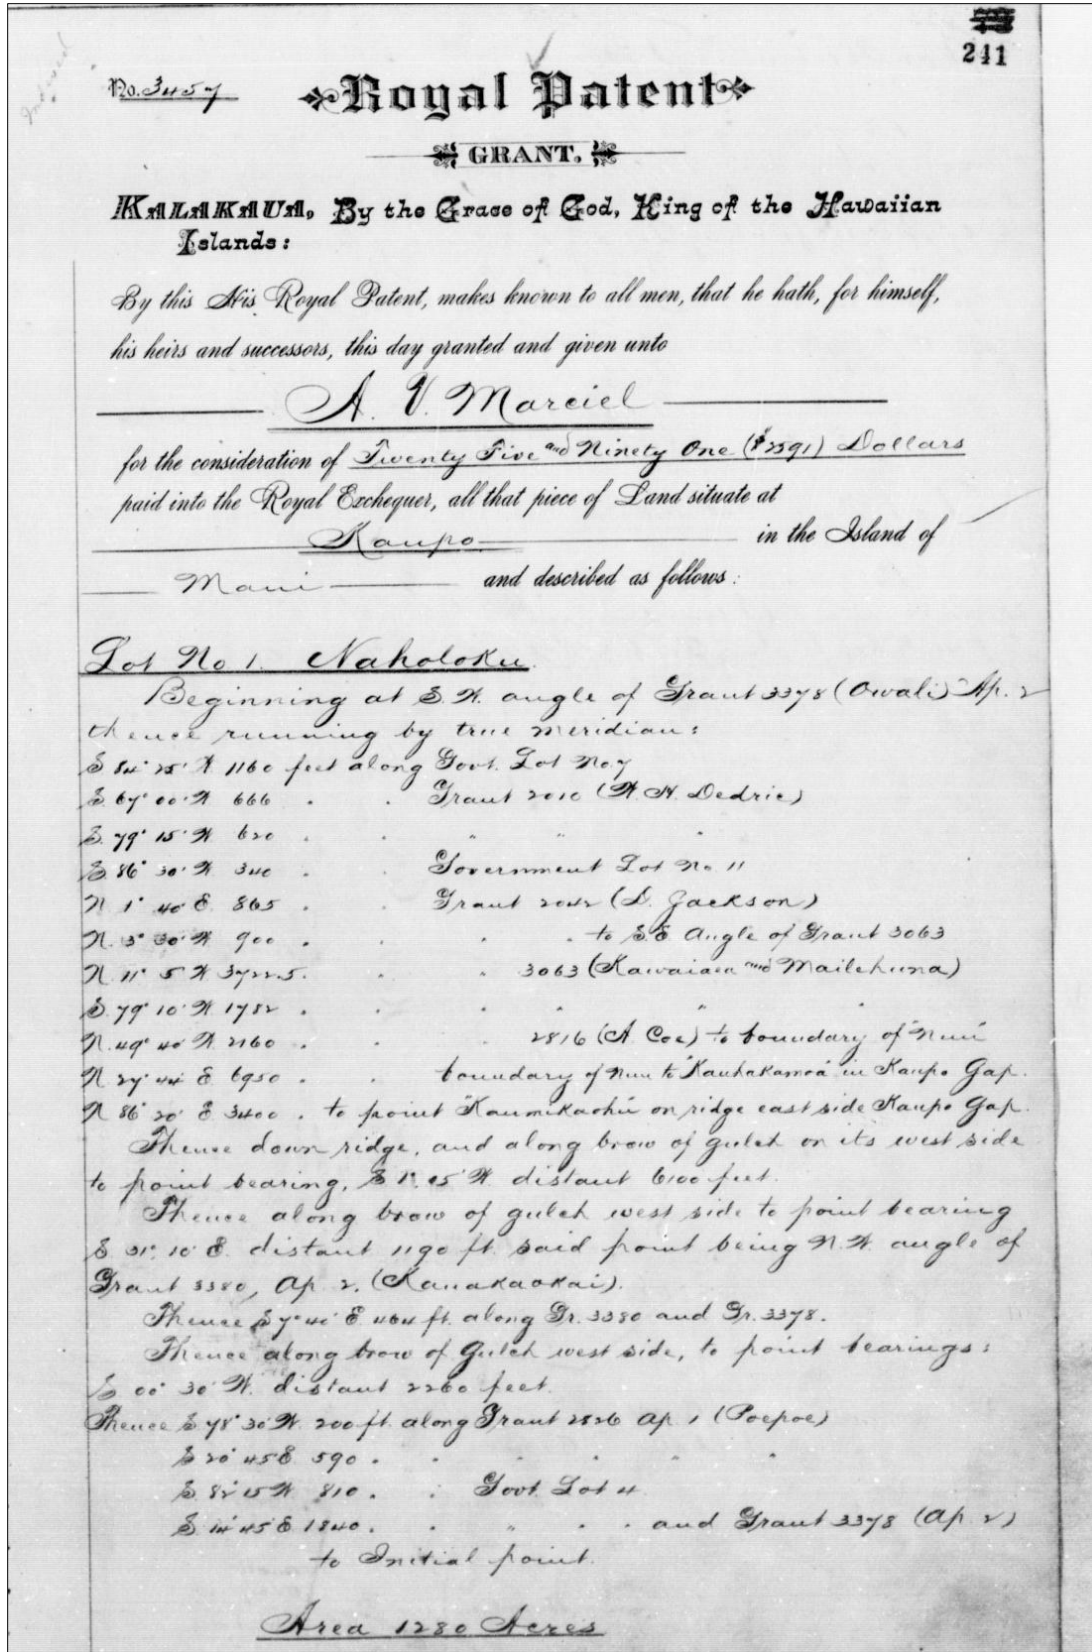 241
No. 3457
Royal Patent
GRANT.
KALAKAUA, By the Grace of God, King of the Hawaiian
Islands:
By this His Royal Patent, makes known to all men, that he hath, for himself,
his heirs and successors, this day granted and given unto
A. V. Marciel
for the consideration of Twenty Five and Ninety One ($2591) Dollars
paid into the Royal Exchequer, all that piece of Land situate at
Kaupo in the Island of
Maui and described as follows:
Lot No 1. Naholoku.
Beginning at S. W. angle of Grant 3378 (Owali) Ap. 2
thence running by true meridian:
S 84° 25' W 1160 feet along Govt. Lot No. 7
S. 67° 00' W 666 . . Grant 2010 (W. H. Dedric)
S. 79° 15' W 620 . . " " "
S. 86° 30' W 340 . . Government Lot No. 11
N 1° 40' E. 865 . . Grant 2042 (D. Jackson)
N. 3° 30' W 900 . . . . to S.E. Angle of Grant 3063
N. 11° 5' W 3722.5. . . 3063 (Kawaiaea and Mailehuna)
S. 79° 10' W 1782 . . . . " "
N. 49° 40' W 2160 . . . 2816 (A. Coe) to boundary of "Nuu"
N 27° 44' E. 6950 . . boundary of Nuu to "Kauhakamoa" in Kaupo Gap.
N 86° 20' E 3400 . to point "Kaumikaohu" on ridge east side Kaupo Gap.
Thence down ridge, and along brow of gulch on its west side
to point bearing, S 1°. 15' W. distant 6100 feet.
Thence along brow of gulch west side to point bearing
S 31°. 10' E. distant 1190 ft. said point being N. W. angle of
Grant 3380, Ap. 2. (Kanakaokai).
Thence S 7° 40' E 464 ft. along Gr. 3380 and Gr. 3378.
Thence along brow of Gulch west side, to point bearings:
S 00° 30' W. distant 2260 feet.
Thence S. 78° 30' W. 200 ft. along Grant 2826 Ap. 1 (Poepoe)
S 20° 45' E 590 . . . . " "
S. 82° 15' W 810 . . Govt. Lot 4
S 14° 45' E 1840 . . " . . and Grant 3378 (Ap. 2)
to Initial point.
Area 1280 Acres